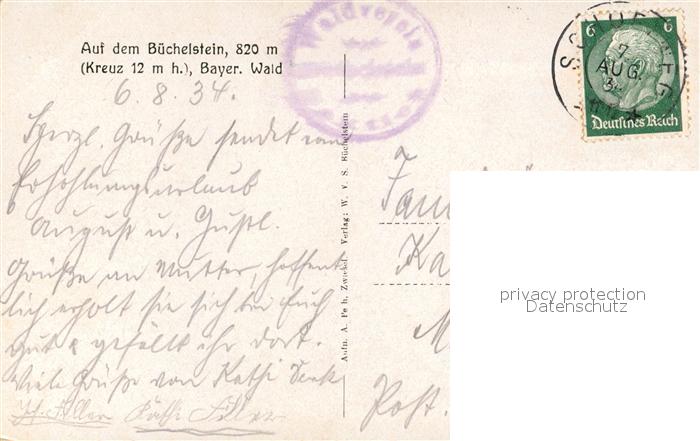 Auf dem Büchelstein, 820 m
(Kreuz 12 m h.), Bayer. Wald
6. 8. 34.
Herzl. Grüße sendet vom
Erhohlungsurlaub
August u. Gustl.
Grüße an Mutter, hoffent
lich erholt sie sich bei Euch
gut & gefällt ihr dort.
Viele Grüße von Kathi
Kathi
Waldverein
Aufn. A. Zwiesel. Verlag: W. V. S. Büchelstein
6 6
Deutsches Reich
7.
AUG.
34
Fam
Ka
M
Post.
privacy protection
Datenschutz